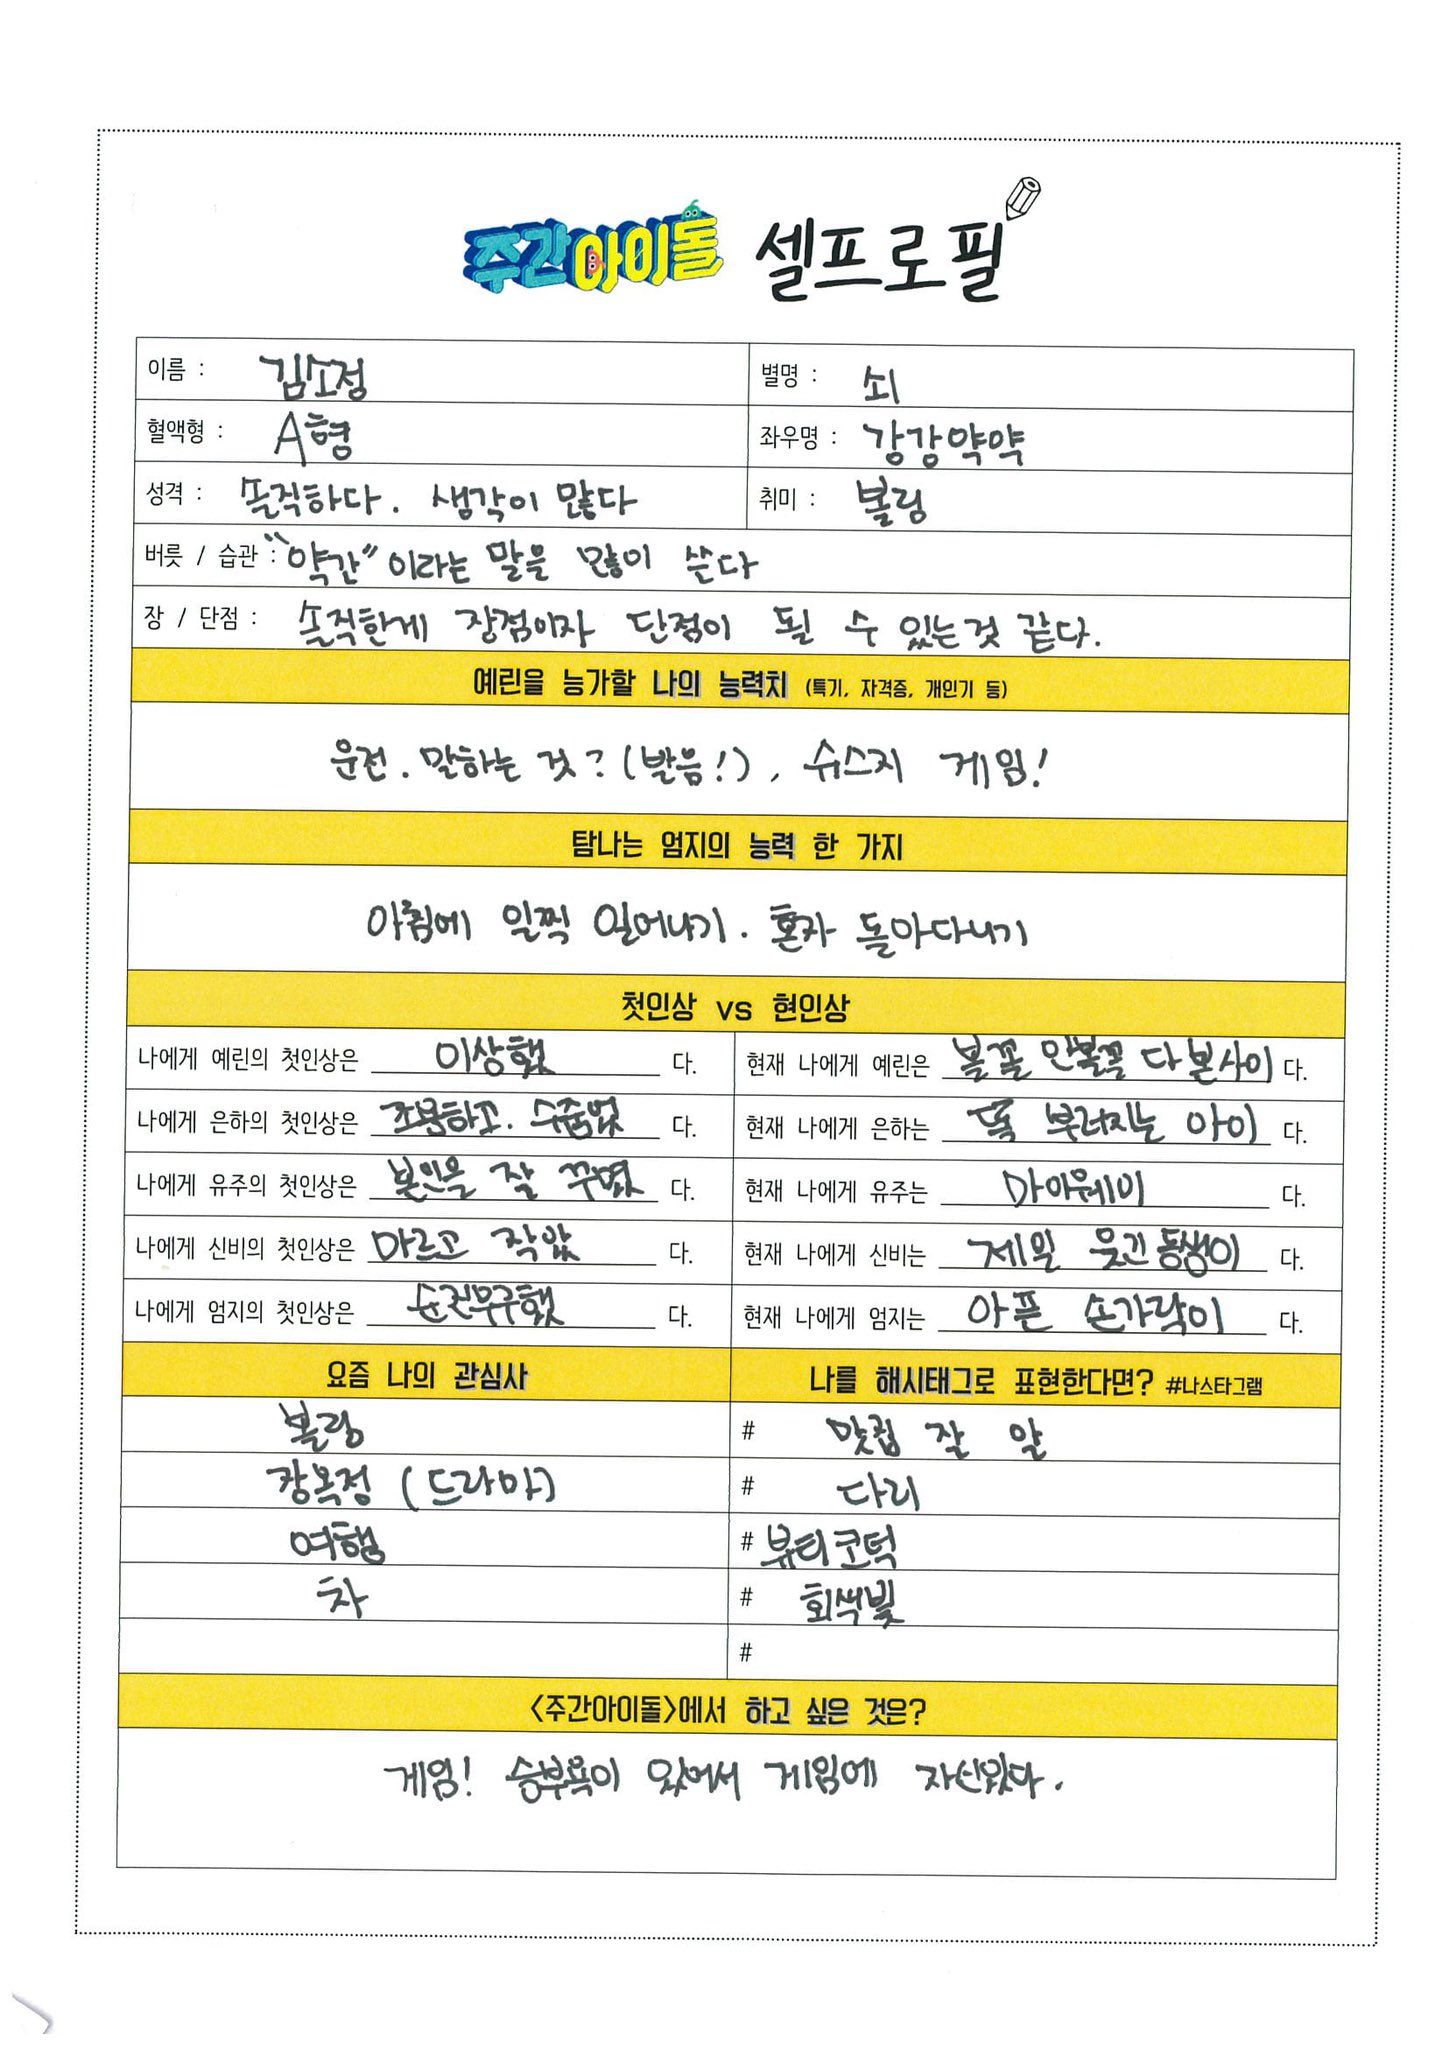 주간아이돌 셀프로필
이름 : 김소정 별명 : 쇠
혈액형 : A형 좌우명 : 강강약약
성격 : 솔직하다. 생각이 많다 취미 : 볼링
버릇 / 습관 : "약간"이라는 말을 많이 쓴다
장 / 단점 : 솔직한게 장점이자 단점이 될 수 있는것 같다.
예린을 능가할 나의 능력치 (특기, 자격증, 개인기 등)
운전. 말하는 것? (발음!), 슈스지 게임!
탐나는 엄지의 능력 한 가지
아침에 일찍 일어나기. 혼자 돌아다니기
첫인상 vs 현인상
나에게 예린의 첫인상은 이상했 다. 현재 나에게 예린은 볼꼴 안볼꼴 다 본사이 다.
나에게 은하의 첫인상은 조용하고. 수줍었 다. 현재 나에게 은하는 똑 부러지는 아이 다.
나에게 유주의 첫인상은 본인을 잘 꾸몄 다. 현재 나에게 유주는 마이웨이 다.
나에게 신비의 첫인상은 마르고 작았 다. 현재 나에게 신비는 제일 웃긴 동생이 다.
나에게 엄지의 첫인상은 순진무구했 다. 현재 나에게 엄지는 아픈 손가락이 다.
요즘 나의 관심사 나를 해시태그로 표현한다면? #나스타그램
볼링 # 맛집 잘 알
장옥정 (드라마) # 다리
여행 # 뷰티코덕
차 # 회색빛
#
<주간아이돌>에서 하고 싶은 것은?
게임! 승부욕이 있어서 게임에 자신있다.